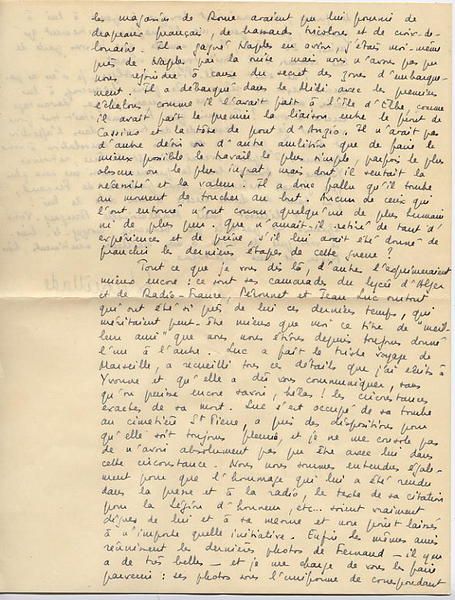 les magasins de Rome avaient pu lui fournir de
drapeaux français, de hussards tricolores et de croix-de-
Lorraine. Il a gagné Naples en avion, j'étais moi-même
près de Naples par la suite, mais nous n'avons pas pu
nous rejoindre à cause du secret des zones d'embarque-
ment. Il a débarqué dans le Midi avec les premiers
échelons comme il l'avait fait à l'Île d'Elbe, comme
il avait fait le premier la liaison entre le front de
Cassino et la tête de pont d'Anzio. Il n'avait pas
d'autre désir ou d'autre ambition que de faire le
mieux possible le travail le plus simple, parfois le plus
obscur ou le plus ingrat, mais dont il sentait la
nécessité et la valeur. Il a donc fallu qu'il tombe
au moment de toucher au but. Aucun de ceux qui
l'ont entouré n'ont connu quelqu'un de plus humain
ni de plus pur. Que n'aurait-il retiré de tant d'
expériences et de peine, s'il lui avait été donné de
franchir les dernières étapes de cette guerre ?
Tout ce que je vous dis là, d'autres l'exprimeraient
mieux encore : ce sont ses camarades du lycée d'Alger
et de Radio-France, Péronnet et Jean Luc surtout
qui ont été si près de lui ces derniers temps, qui
mériteraient peut-être mieux que moi ce titre de "meil-
leur ami" que nous nous étions depuis toujours donné
l'un à l'autre. Luc a fait le triste voyage de
Marseille, a recueilli tous ces détails que j'ai écrits à
Yvonne et qu'elle a dû vous communiquer, sans
qu'on puisse encore savoir, hélas ! les circonstances
exactes de sa mort. Luc s'est occupé de sa tombe
au cimetière St Pierre, a pris des dispositions pour
qu'elle soit toujours fleurie, et je ne me console pas
de n'avoir absolument pas pu être avec lui dans
cette circonstance. Nous nous sommes entendus égale-
ment pour que l'hommage qui lui a été rendu
dans la presse et à la radio, le texte de sa citation
pour la Légion d'honneur, etc... soient vraiment
dignes de lui et à sa mesure et non point laissés
à n'importe quelle initiative. Enfin les mêmes amis
réunissent les dernières photos de Fernand — il y en
a de très belles — et je me charge de vous les faire
parvenir : ses photos sous l'uniforme de correspondant